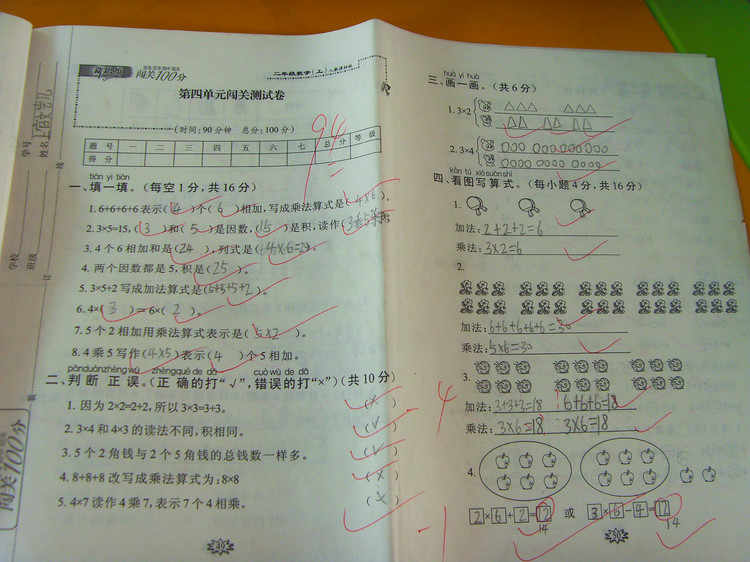 闯关100分
二年级数学(上)
第四单元闯关测试卷
(时间:90分钟 总分:100分)
94
题号 一 二 三 四 五 六 七 总分 等级
得分
学号
姓名
学校
班级
线
订
装
闯关100分
tián yi tián
一、填一填。(每空1分,共16分)
1. 6+6+6+6表示(4)个(6)相加,写成乘法算式是(4×6)。
2. 3×5=15,(3)和(5)是因数,(15)是积,读作( )。
3. 4个6相加和是(24),列式是(4×6=24)。
4. 两个因数都是5,积是(25)。
5. 3×5+2写成加法算式是(5+5+5+2)。
6. 4×(3)=6×(2)。
7. 5个2相加用乘法算式表示是(5×2)。
8. 4乘5写作(4×5)表示(4)个5相加。
pànduànzhèngwù zhèngquè de dǎ cuòwù de dǎ
二、判断正误。(正确的打“√”,错误的打“×”)(共10分)
1. 因为2×2=2+2,所以3×3=3+3。 (×)
2. 3×4和4×3的读法不同,积相同。 (√)
3. 5个2角钱与2个5角钱的总钱数一样多。 (√)
4. 8+8+8改写成乘法算式为:8×8 (×)
5. 4×7读作4乘7,表示7个4相乘。 (×)
huà yi huà
三、画一画。(共6分)
1. 3×2
2. 3×4
-4
kàn tú xiě suàn shì
四、看图写算式。(每小题4分,共16分)
1.
加法:2+2+2=6
乘法:3×2=6
2.
加法:6+6+6+6+6=30
乘法:5×6=30
3.
加法:3+3+2=18 6+6+6=18
乘法:3×6=18 3×6=18
4.
2×6+2=12 或 3×6-4=12
14 14
-1